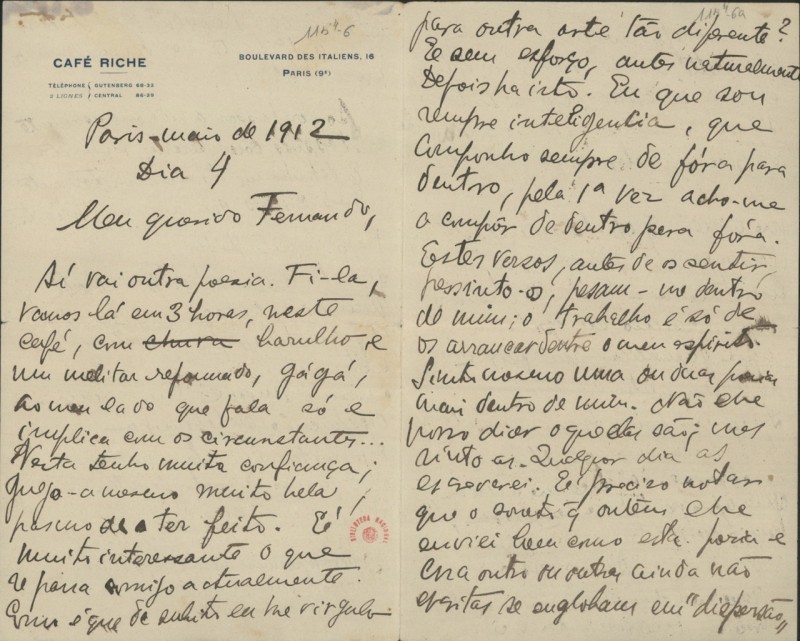 115⁴-6
CAFÉ RICHE
TÉLÉPHONE GUTENBERG 68-32
2 LIGNES CENTRAL 86-25
BOULEVARD DES ITALIENS, 16
PARIS (9e)
Paris - maio de 1912
Dia 4
Meu querido Fernando,
Aí vai outra poesia. Fi-la,
vamos lá em 3 horas, neste
café, com chuva barulho e
um militar reformado, gágá,
ao meu lado que fala só e
implica com os circunstantes...
Nesta tenho muita confiança;
julgo-a mesmo muito bela;
pasmo de a ter feito. É
muito interessante o que
se passa comigo actualmente.
Como é que de subito eu me virgulo
115⁴-6a
para outra arte tão diferente?
E sem esforço, antes naturalmente
Depois ha isto. Eu que sou
sempre inteligencia, que
componho sempre de fóra para
dentro, pela 1ª vez acho-me
a compôr de dentro para fóra.
Estes versos, antes de os sentir,
pressinto-os, pesam-me dentro
de mim; o trabalho é só de
os arrancar dentre o meu espirito.
Sinto mesmo uma ou duas
mais dentro de mim. Não lhe
posso dizer o que elas são; mas
sinto as. Qualquer dia as
escreverei. E preciso notar
que o soneto q ontem lhe
enviei bem como esta poesia e
uma outra ou outras ainda não
escritas se englobam em "dispersão"